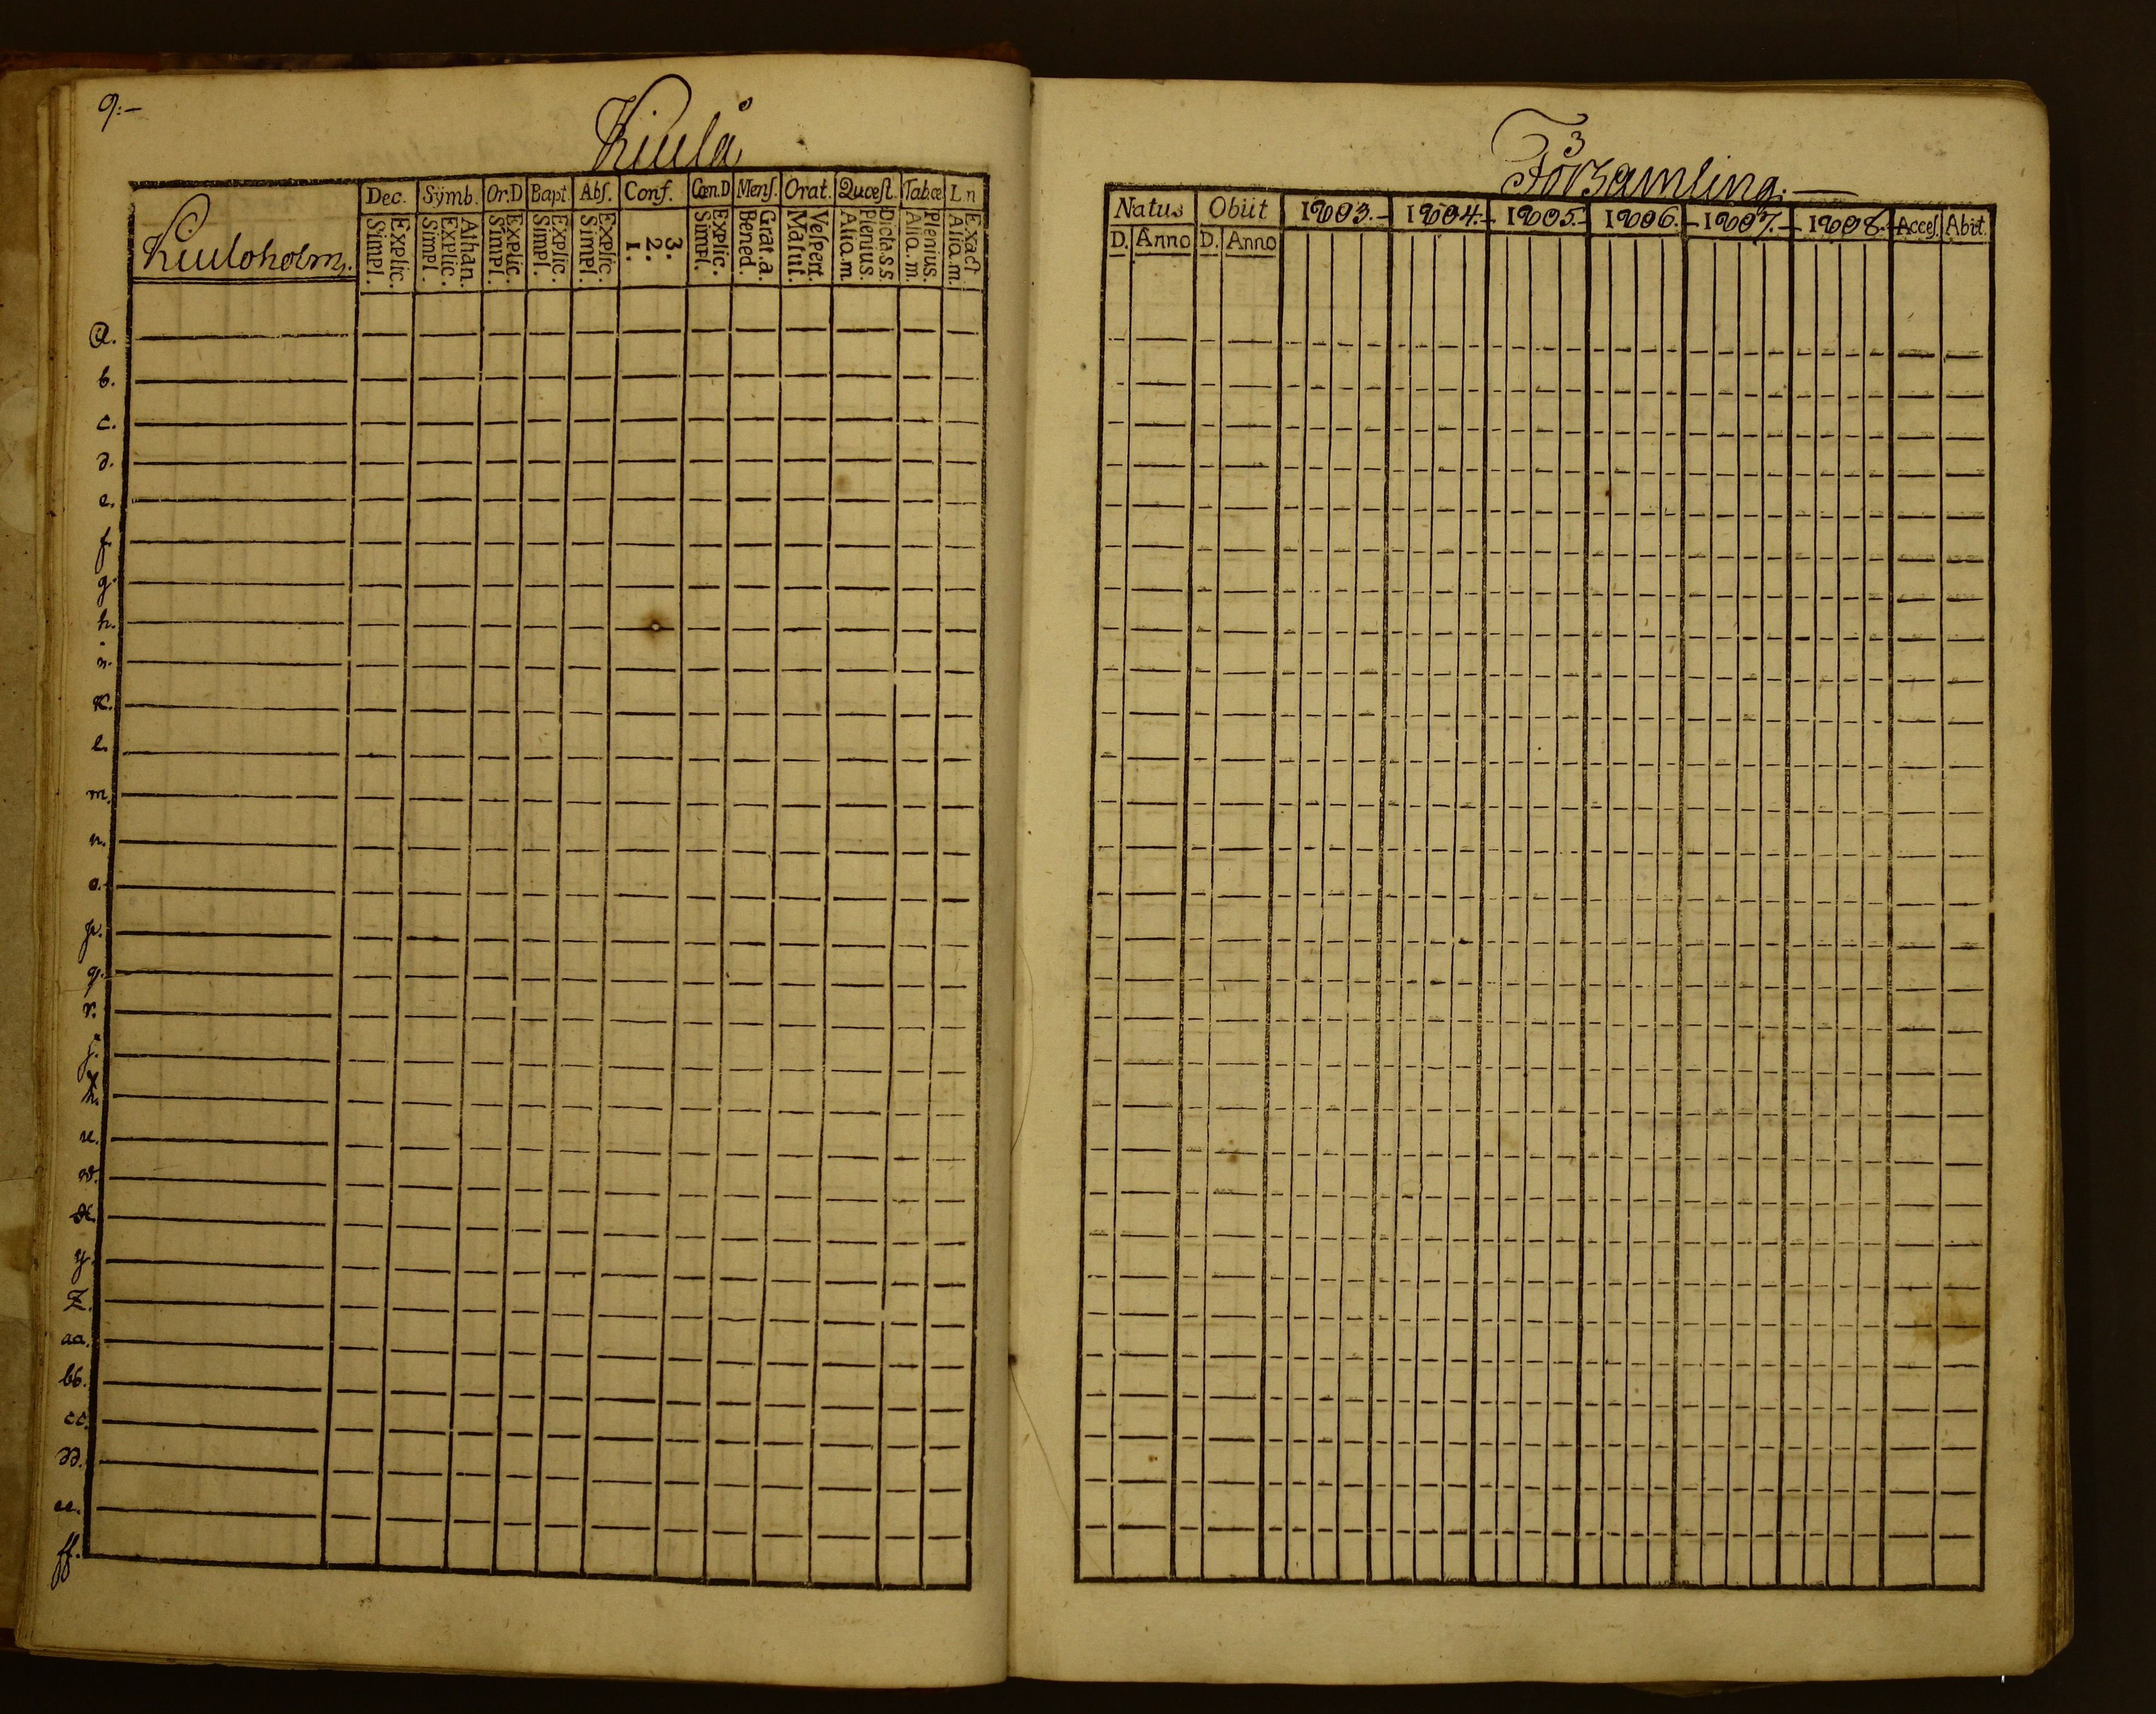 9.-
Kiulå
Kiuloholm.
Dec. Sÿmb. Or.D Bapt. Abſ. Conf. Cœn.D Menſ. Orat. Quœſt. Tabœ L.n
Simpl. Explic. Simpl. Explic. Athan. Simpl. Explic. Simpl. Explic. Simpl. Explic. 1. 2. 3. Simpl. Explic. Bened. Grat.a. Matut. Veſpert. Aliq.m Plenius. Dicta.s.s. Aliq.m. Plenius. Aliq.m. Exact
a.
b.
c.
d.
e.
f.
g.
h.
i.
k.
l.
m.
n.
o.
p.
q.
r.
s.
t.
u.
w.
x.
y.
z.
aa.
bb.
cc.
dd.
ee.
ff.
3
Församling.
Natus Obiit 1803.- 1804.- 1805.- 1806.- 1807.- 1808.- Acceſ. Abiit.
D. Anno D. Anno